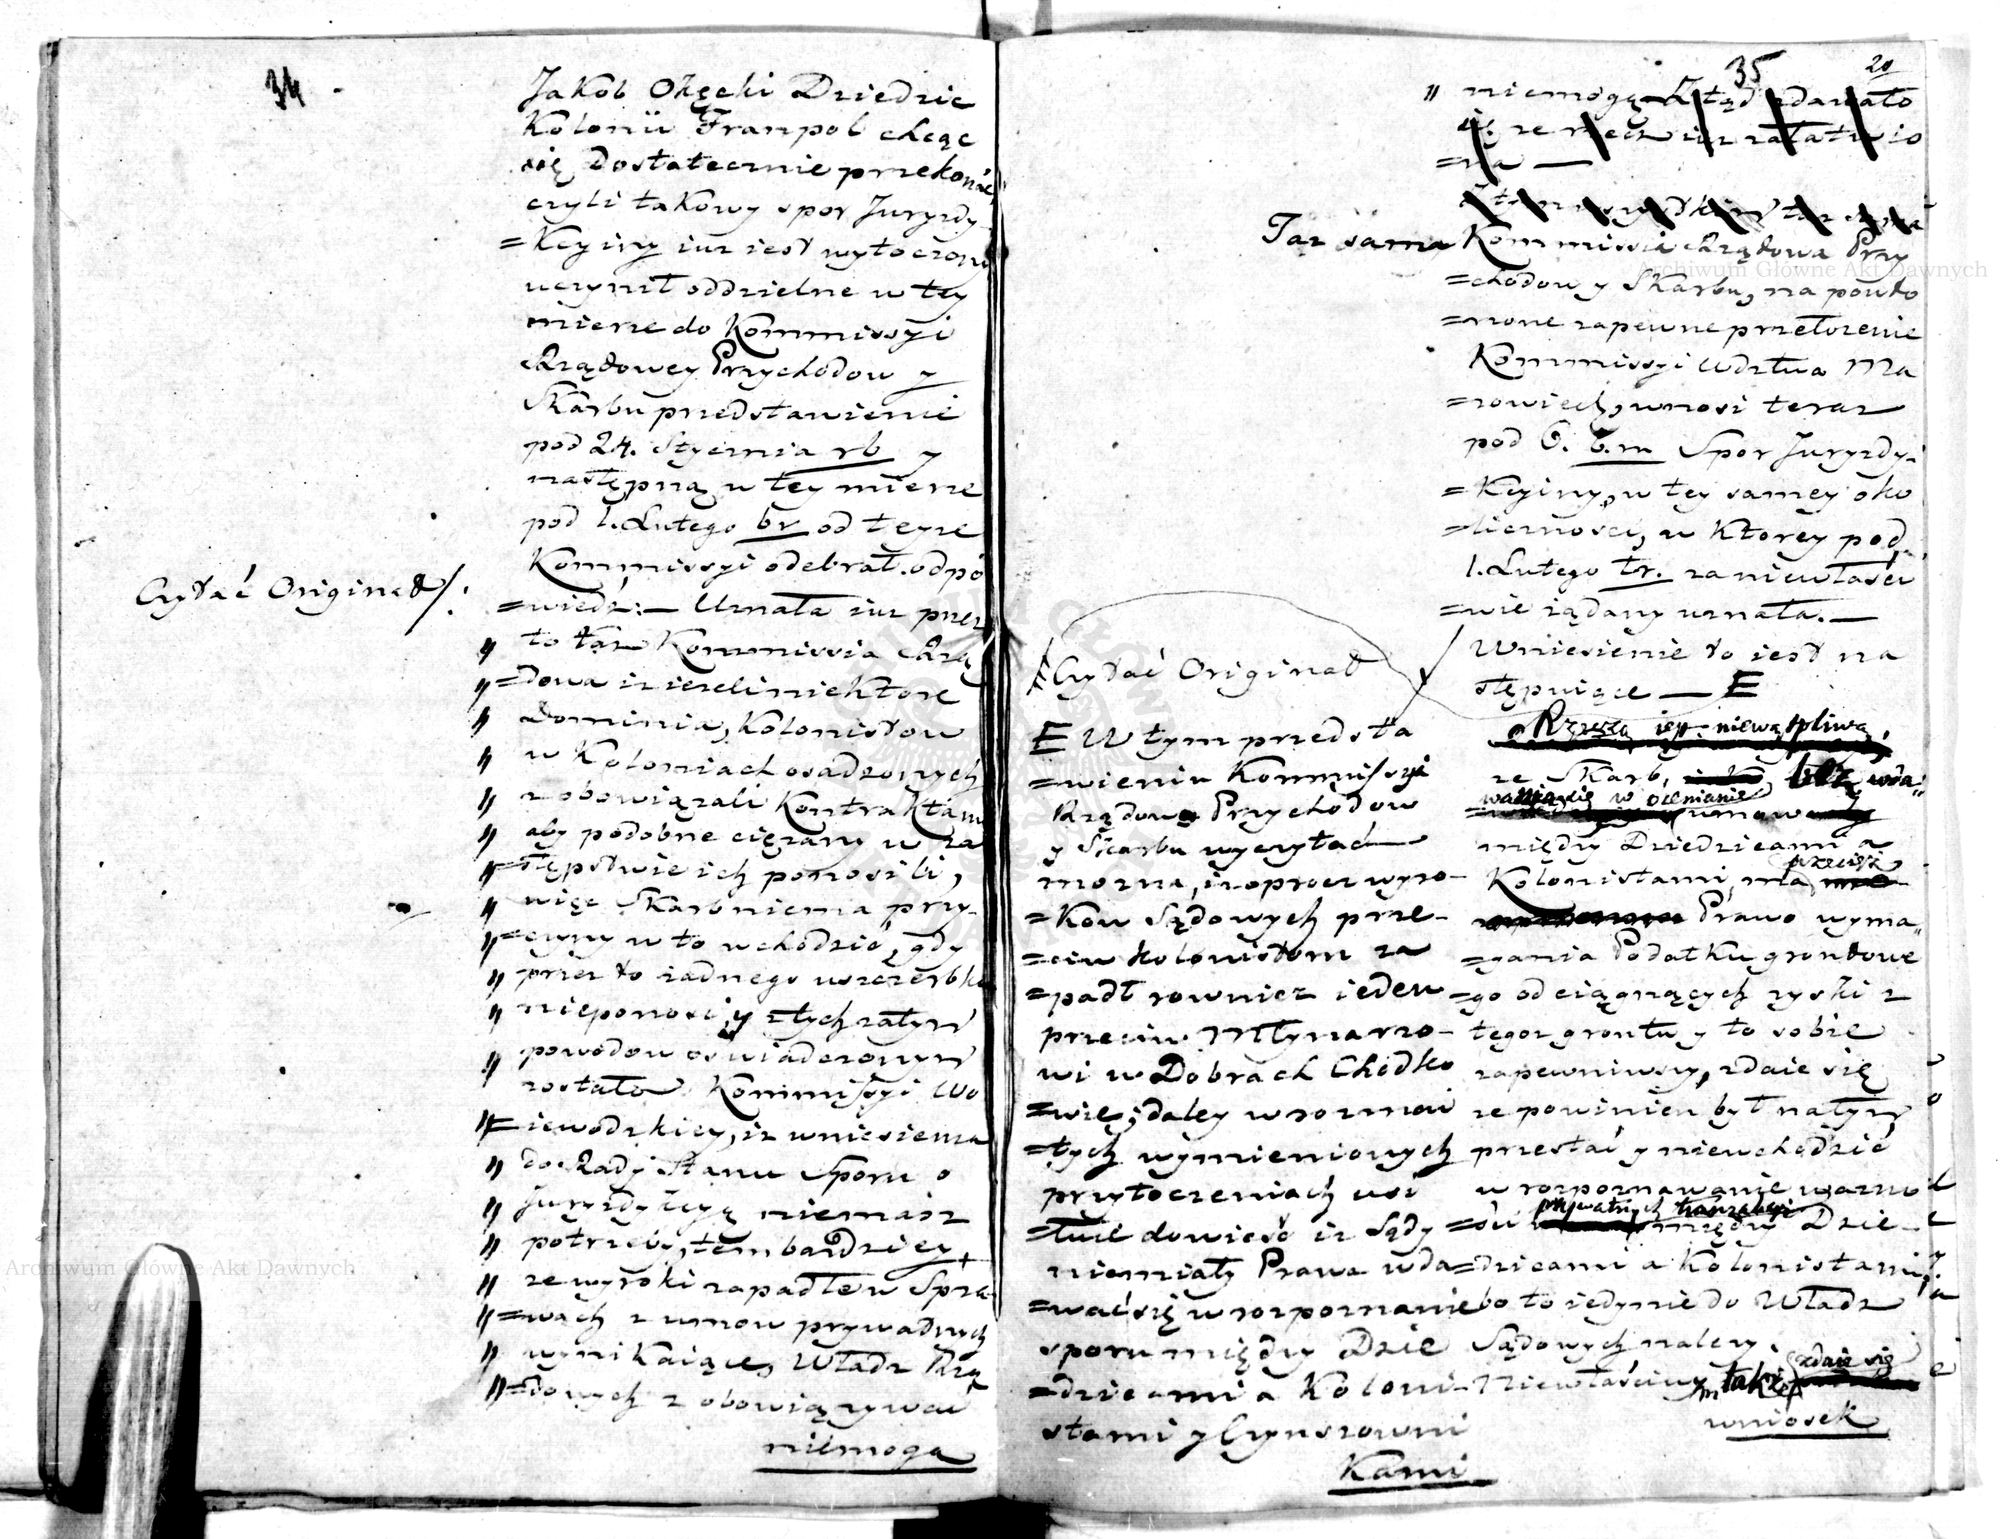 34
Jakob Okęcki Dziedzic
Kolonii Franpol chcąc
się dostatecznie przekonáć
czyli takowy spor Juryzdy
=Kcyiny iuz iest wytoczony
uczynił oddzielne w tey
mierze do Kommissyi
Rządowey Przychodow y
Skarbu przedstawienie
pod 24. Stycznia rb y
następną w tey mierze
pod 1. Lutego br od teyze
Kommissyi odebrał odpo
Czytać Originał/:
=wiedz:— Uznała iuz przez
„ to taz Kommissia Rzą
„ =dowa iz iezeli niektore
„ Dominia, Kolonistow
„ w Koloniach osadzonych
„ zobowiązali Kontraktami
„ aby podobne cięzary w za
„ =stępstwie ich ponosili,
„ więc Skarb niema przy-
„ =czyny w to wchodzić, gdy
„ przez to zadnego uszczerbku
„ nieponosi, y z tych zatym
„ powodow oswiadczonym
zostało Kommissyi Wo
„ =iewodzkiey, iz wniesienia
„ do Rady Stanu Sporu o
„ Juryzdykcyą niemasz
„ potrzeby, tem bardziey
„ ze wyroki zapadłe w Spra-
„ =wach z umow prywatnych
„ wynikaiące, Władz Rzą
„ =dowych z obowiązywać
niemogą
35
20
„ niemogą Ztąd zdawało
się ze rzecz iuz załatwio
=na —
Taz sama Kommissia Rządowa Przy
=chodow y Skarbu, na powto
=rzone zapewne przełozenie
Kommissyi Wdztwa Ma
=zowieck, wnosi teraz
pod 6. b.m Spor Juryzdy-
=Kcyiny, w tey samey oko
=liczności, w Ktorey pod
1. Lutego br. za niewłaści
=wie ządany uznała.—
Wniesienie to iest na
stępuiące — E
Czytać Originał
E W tym przedsta
=wieniu Kommissyi
Rządowey Przychodow
y Skarbu wyczytać
mozna, iz oprocz wyro-
=Kow Sądowych prze-
=ciw kolonistom za
=padł rowniez ieden
przeciw Młynarzo-
wi w Dobrach Chodko
=wie; daley w rozmai
=tych wymienionych
przytoczeniach usi
=łuie dowieść iz Sądy
niemiały Prawa wda=
=wać się w rozpoznanie
sporu między Dzie
=dzicami a Koloni-
stami y Czynszowni
Kami
Rzeczą iest niewątpliwą,
ze Skarb, bez wda-
wania się w ocenianie umow
między Dziedzicami a
Kolonistami, ma przecież
Prawo wyma„
=gania Podatku gruntowe
=go od ciągnących zyski z
tegoz gruntu y to sobie
zapewniwszy, zdaie się
ze powinien był natym
przestać y niewchodzić
w rozpoznawanie wazno
=sci prywatnych tranzakcyi między Dzie-
=dzicami a Kolonistami,
bo to iedynie do Władz
Sądowych nalezy.
Niewłaściwym także zdaie się
wniosek